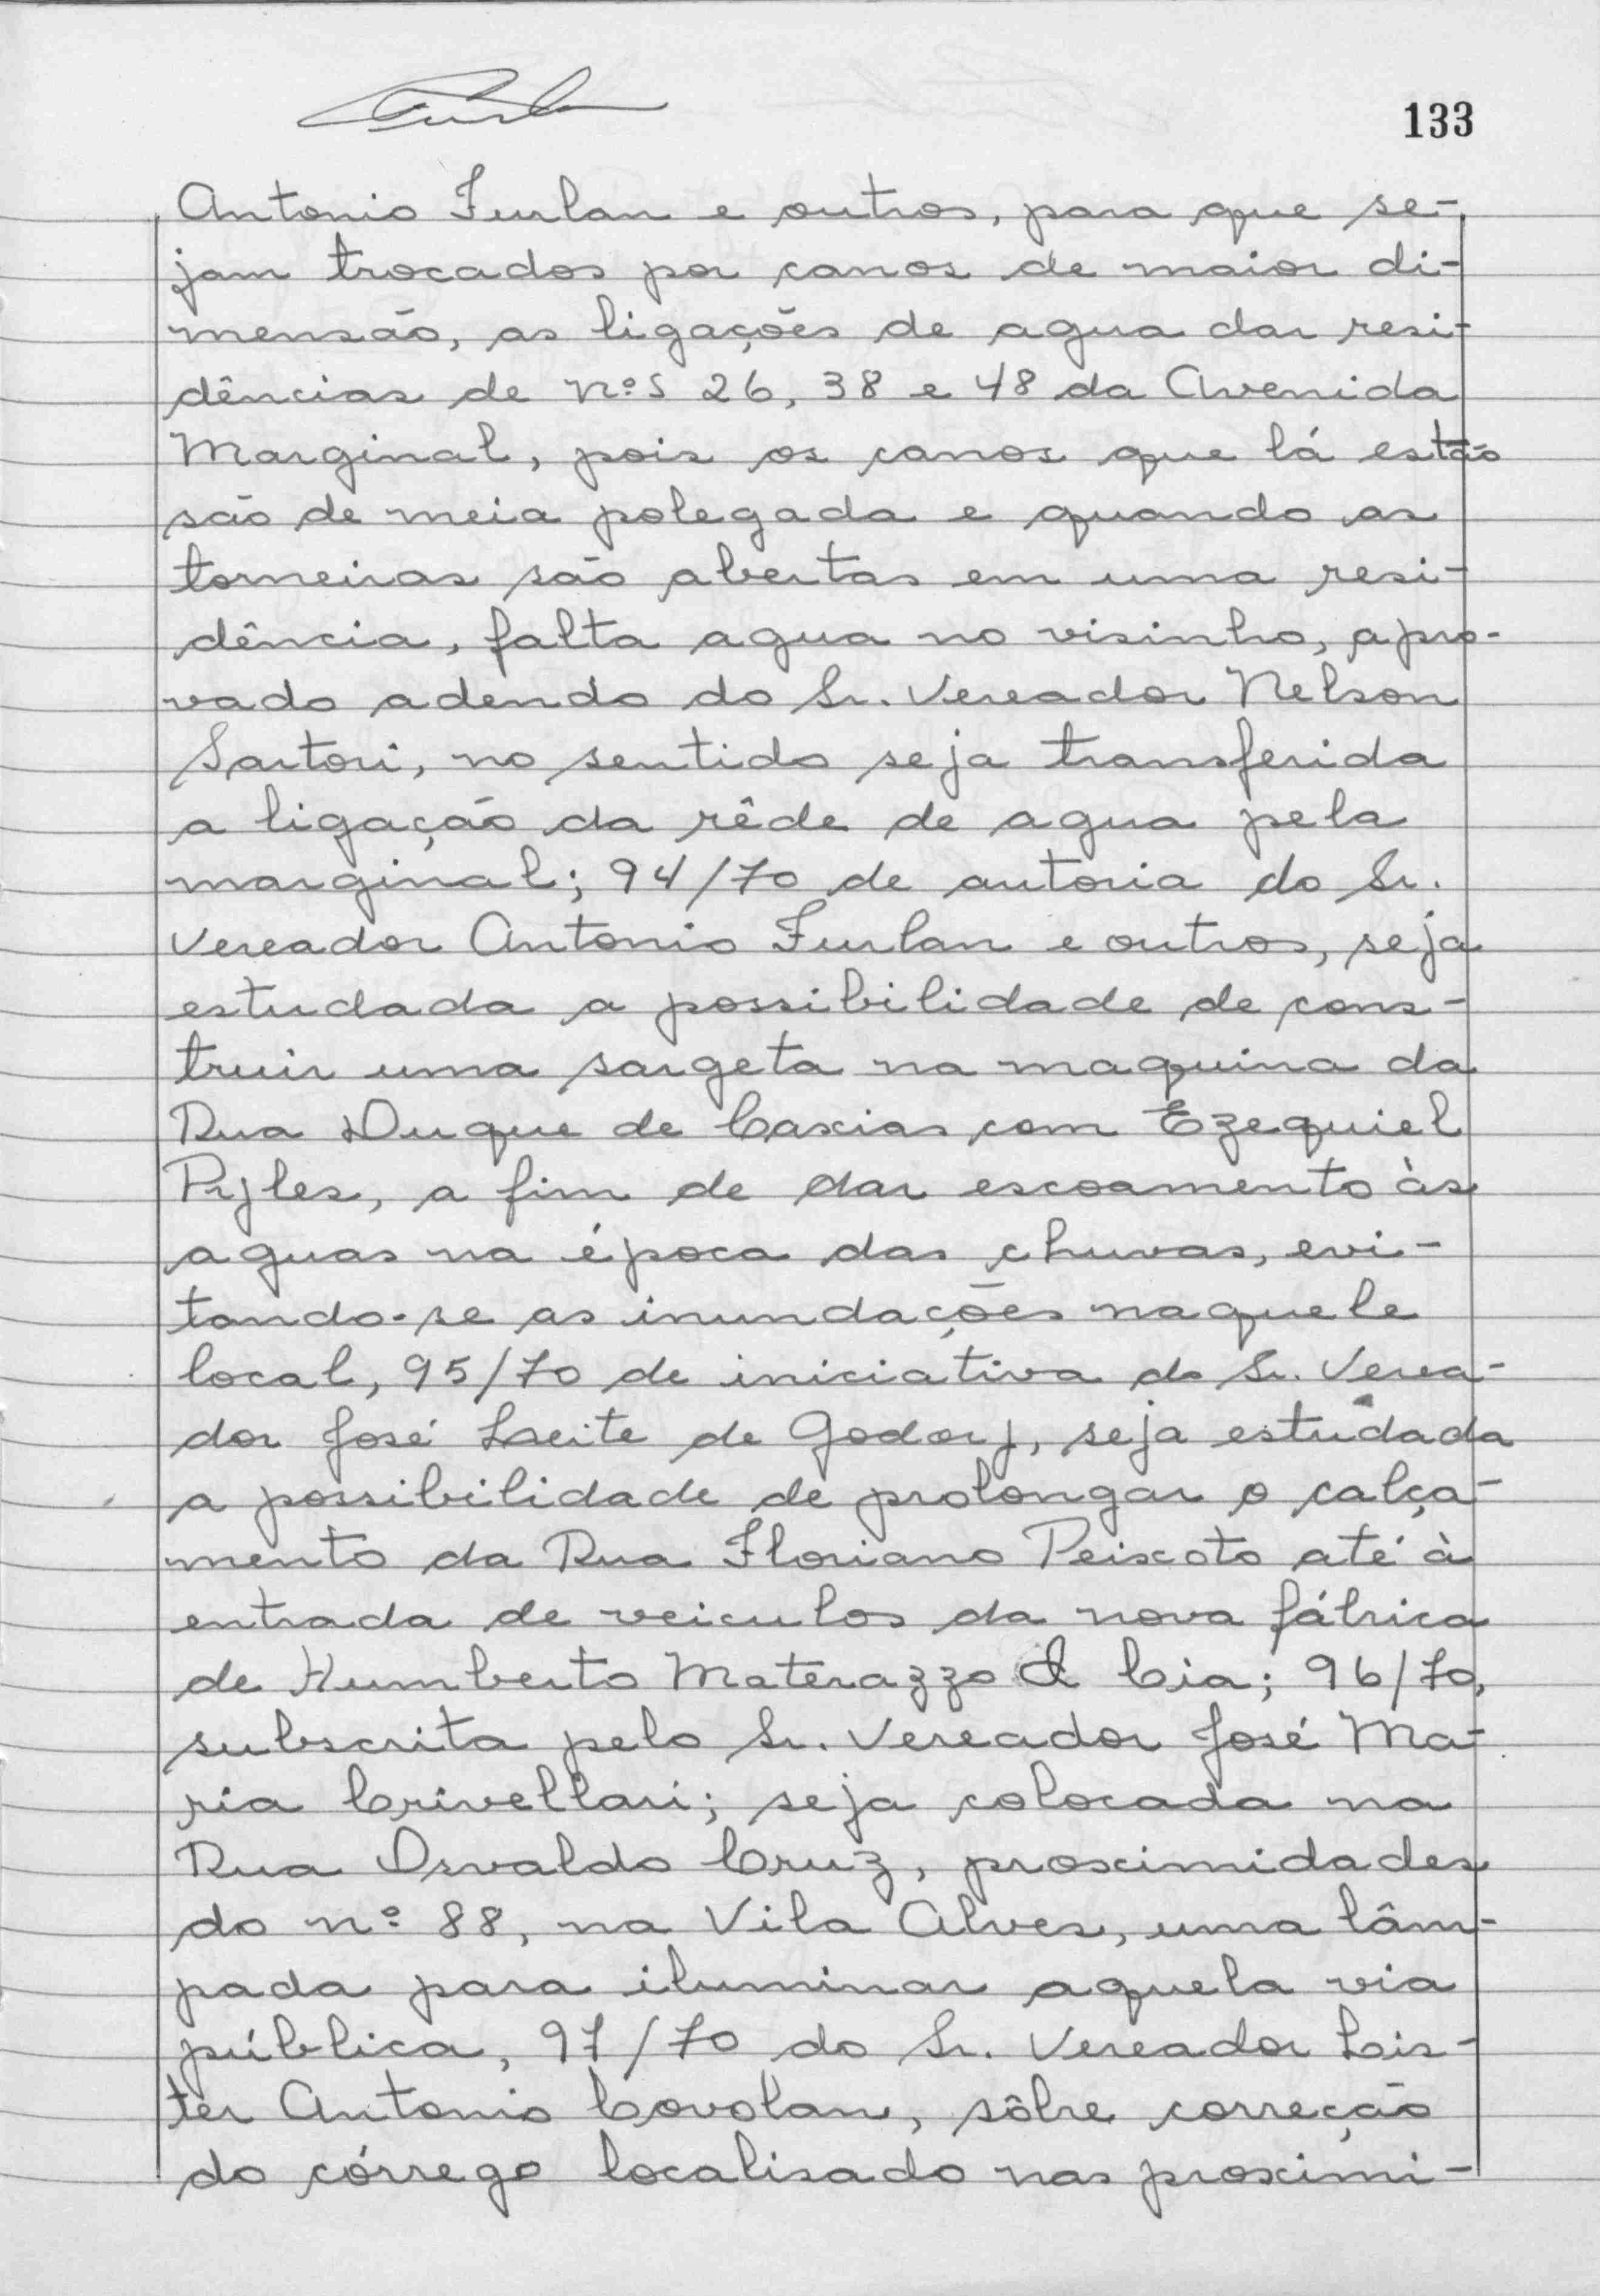 133
Antonio Furlan e outros, para que se-
jam trocados por canos de maior di-
mensão, as ligações de agua das resi-
dências de nºs 26, 38 e 48 da Avenida
Marginal, pois os canos que lá estão
são de meia polegada e quando as
torneiras são abertas em uma resi-
dência, falta agua no visinho, apro-
vado adendo do Sr. Vereador Nelson
Sartori, no sentido seja transferida
a ligação da rêde de agua pela
marginal; 94/70 de autoria do Sr.
Vereador Antonio Furlan e outros, seja
estudada a possibilidade de cons-
truir uma sargeta na maquina da
Rua Duque de Caxias com Ezequiel
Pyles, a fim de dar escoamento às
aguas na época das chuvas, evi-
tando-se as inundações naquele
local, 95/70 de iniciativa do Sr. Verea-
dor José Leite de Godoy, seja estudada
a possibilidade de prolongar o calça-
mento da Rua Floriano Peixoto até à
entrada de veiculos da nova fábrica
de Humberto Materazzo & Cia; 96/70,
subscrita pelo Sr. Vereador José Ma-
ria Crivellari; seja colocada na
Rua Osvaldo Cruz, proximidades
do nº 88, na Vila Alves, uma lâm-
pada para iluminar aquela via
pública, 97/70 do Sr. Vereador Lis-
ter Antonio Covolan, sôbre correção
do córrego localisado nas proximi-